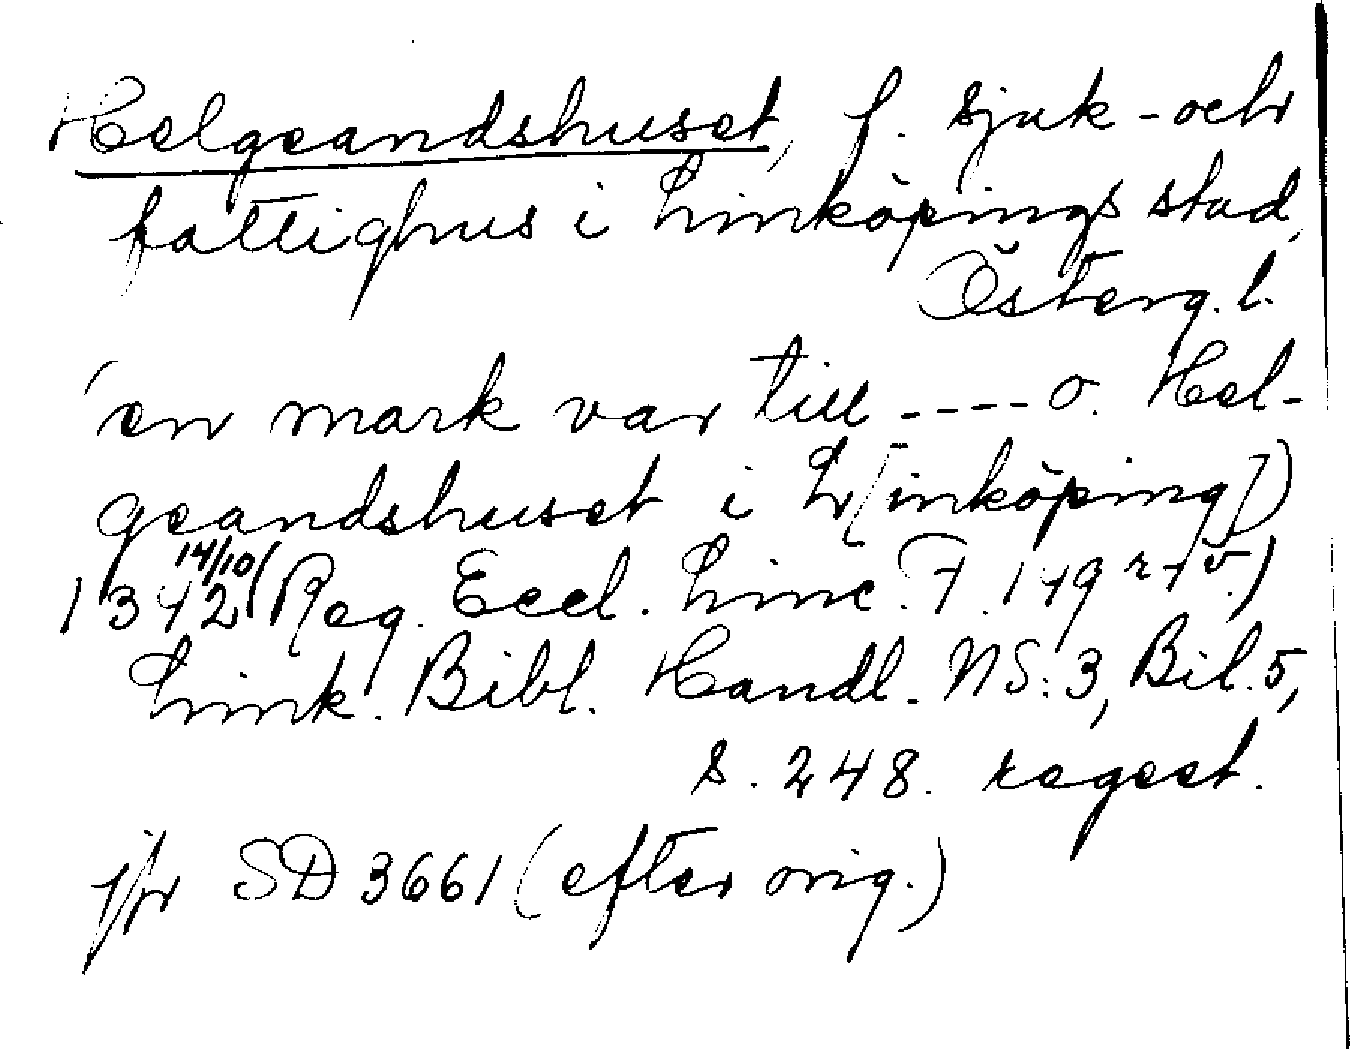 Helgeandshuset, f. sjuk- och
fattighus i Linköpings stad,
Österg. l.
'en mark var till ---- o. Hel-
geandshuset i L[inköping])
1342 14/10 (Reg. Eccl. Linc. F. 149 r+v.)
Link. Bibl. Handl. NS: 3, Bil. 5,
s. 248. regest.
jfr SD 3661 (efter orig.)